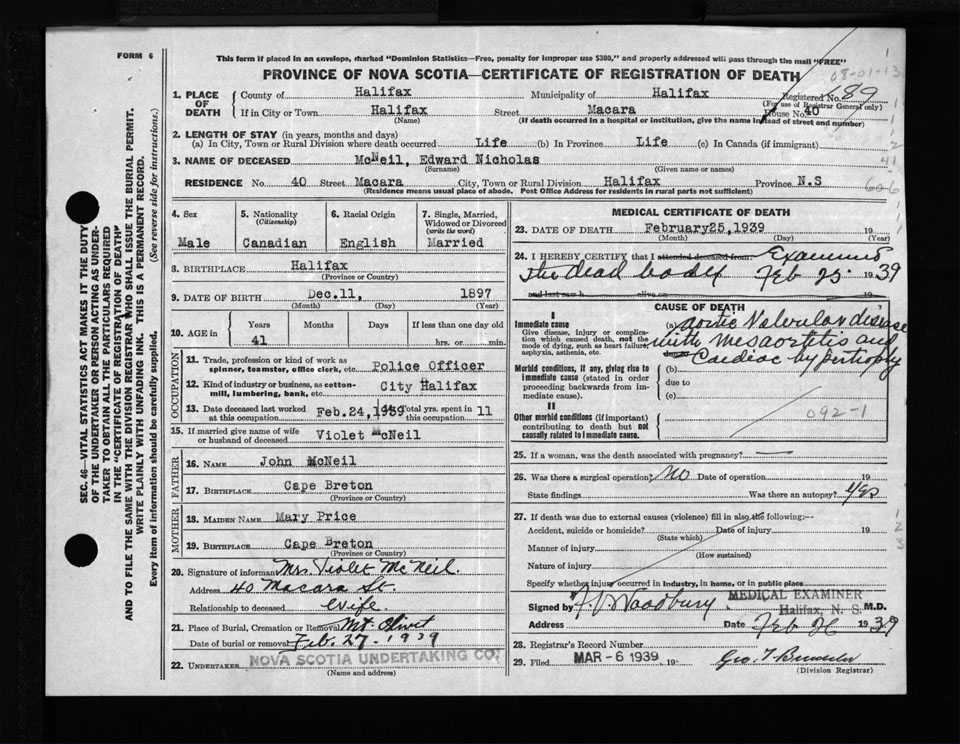 FORM 6
This form if placed in an envelope, marked "Dominion Statistics—Free, penalty for improper use $300," and properly addressed will pass through the mail "FREE"
PROVINCE OF NOVA SCOTIA—CERTIFICATE OF REGISTRATION OF DEATH
08-01-13
1. PLACE OF DEATH
County of Halifax Municipality of Halifax Registered No. 689
(For use of Registrar General only)
If in City or Town Halifax Street Macara House No. 40
(Name) (If death occurred in a hospital or institution, give the name instead of street and number)
2. LENGTH OF STAY (in years, months and days)
(a) In City, Town or Rural Division where death occurred Life (b) In Province Life (c) In Canada (if immigrant)
3. NAME OF DECEASED McNeil, Edward Nicholas
(Surname) (Given name or names)
41
RESIDENCE No. 40 Street Macara City, Town or Rural Division Halifax Province N.S
(Residence means usual place of abode. Post Office Address for residents in rural parts not sufficient)
60-6
4. Sex
Male
5. Nationality
(Citizenship)
Canadian
6. Racial Origin
English
7. Single, Married, Widowed or Divorced
(write the word)
Married
8. BIRTHPLACE Halifax
(Province or Country)
9. DATE OF BIRTH Dec.11, 1897
(Month) (Day) (Year)
10. AGE in
Years Months Days If less than one day old
41 hrs. or min.
OCCUPATION
11. Trade, profession or kind of work as spinner, teamster, office clerk, etc. Police Officer
12. Kind of industry or business, as cotton-mill, lumbering, bank, etc. City Halifax
13. Date deceased last worked at this occupation Feb.24,1939 Total yrs. spent in 11
15. If married give name of wife or husband of deceased Violet McNeil
FATHER
16. NAME John McNeil
17. BIRTHPLACE Cape Breton
(Province or Country)
MOTHER
18. MAIDEN NAME Mary Price
19. BIRTHPLACE Cape Breton
(Province or Country)
20. Signature of informant Mrs. Violet McNeil
Address 40 Macara St.
Relationship to deceased Wife
21. Place of Burial, Cremation or Removal Mt. Olivet
Date of burial or removal Feb. 27 - 1939
22. UNDERTAKER NOVA SCOTIA UNDERTAKING CO.
(Name and address)
MEDICAL CERTIFICATE OF DEATH
23. DATE OF DEATH February25,1939 19
(Month) (Day) (Year)
24. I HEREBY CERTIFY that I attended deceased from: Examined
the dead body Feb 25 1939
and last saw h alive on
CAUSE OF DEATH
I
Immediate cause
Give disease, injury or complication which caused death, not the mode of dying, such as heart failure, asphyxia, asthenia, etc.
(a) Aortic Valvular disease
with mesaortitis and
Cardiac hypertrophy
Morbid conditions, if any, giving rise to immediate cause (stated in order proceeding backwards from immediate cause).
(b)
due to
(c)
II
Other morbid conditions (if important) contributing to death but not causally related to immediate cause.
092-1
25. If a woman, was the death associated with pregnancy?
26. Was there a surgical operation? No Date of operation 19
State findings Was there an autopsy? Yes
27. If death was due to external causes (violence) fill in also the following:—
Accident, suicide or homicide? Date of injury 19
(State which)
Manner of injury
(How sustained)
Nature of injury
Specify whether injury occurred in industry, in home, or in public place
MEDICAL EXAMINER
Signed by Woodbury Halifax, N. S. M.D.
Address Date Feb 26 1939
28. Registrar's Record Number
29. Filed MAR - 6 1939 19
Geo. T.
(Division Registrar)
SEC. 46—VITAL STATISTICS ACT MAKES IT THE DUTY
OF THE UNDERTAKER OR PERSON ACTING AS UNDER-
TAKER TO OBTAIN ALL THE PARTICULARS REQUIRED
IN THE "CERTIFICATE OF REGISTRATION OF DEATH"
AND TO FILE THE SAME WITH THE DIVISION REGISTRAR WHO SHALL ISSUE THE BURIAL PERMIT.
WRITE PLAINLY WITH UNFADING INK. THIS IS A PERMANENT RECORD.
Every item of information should be carefully supplied. (See reverse side for instructions.)